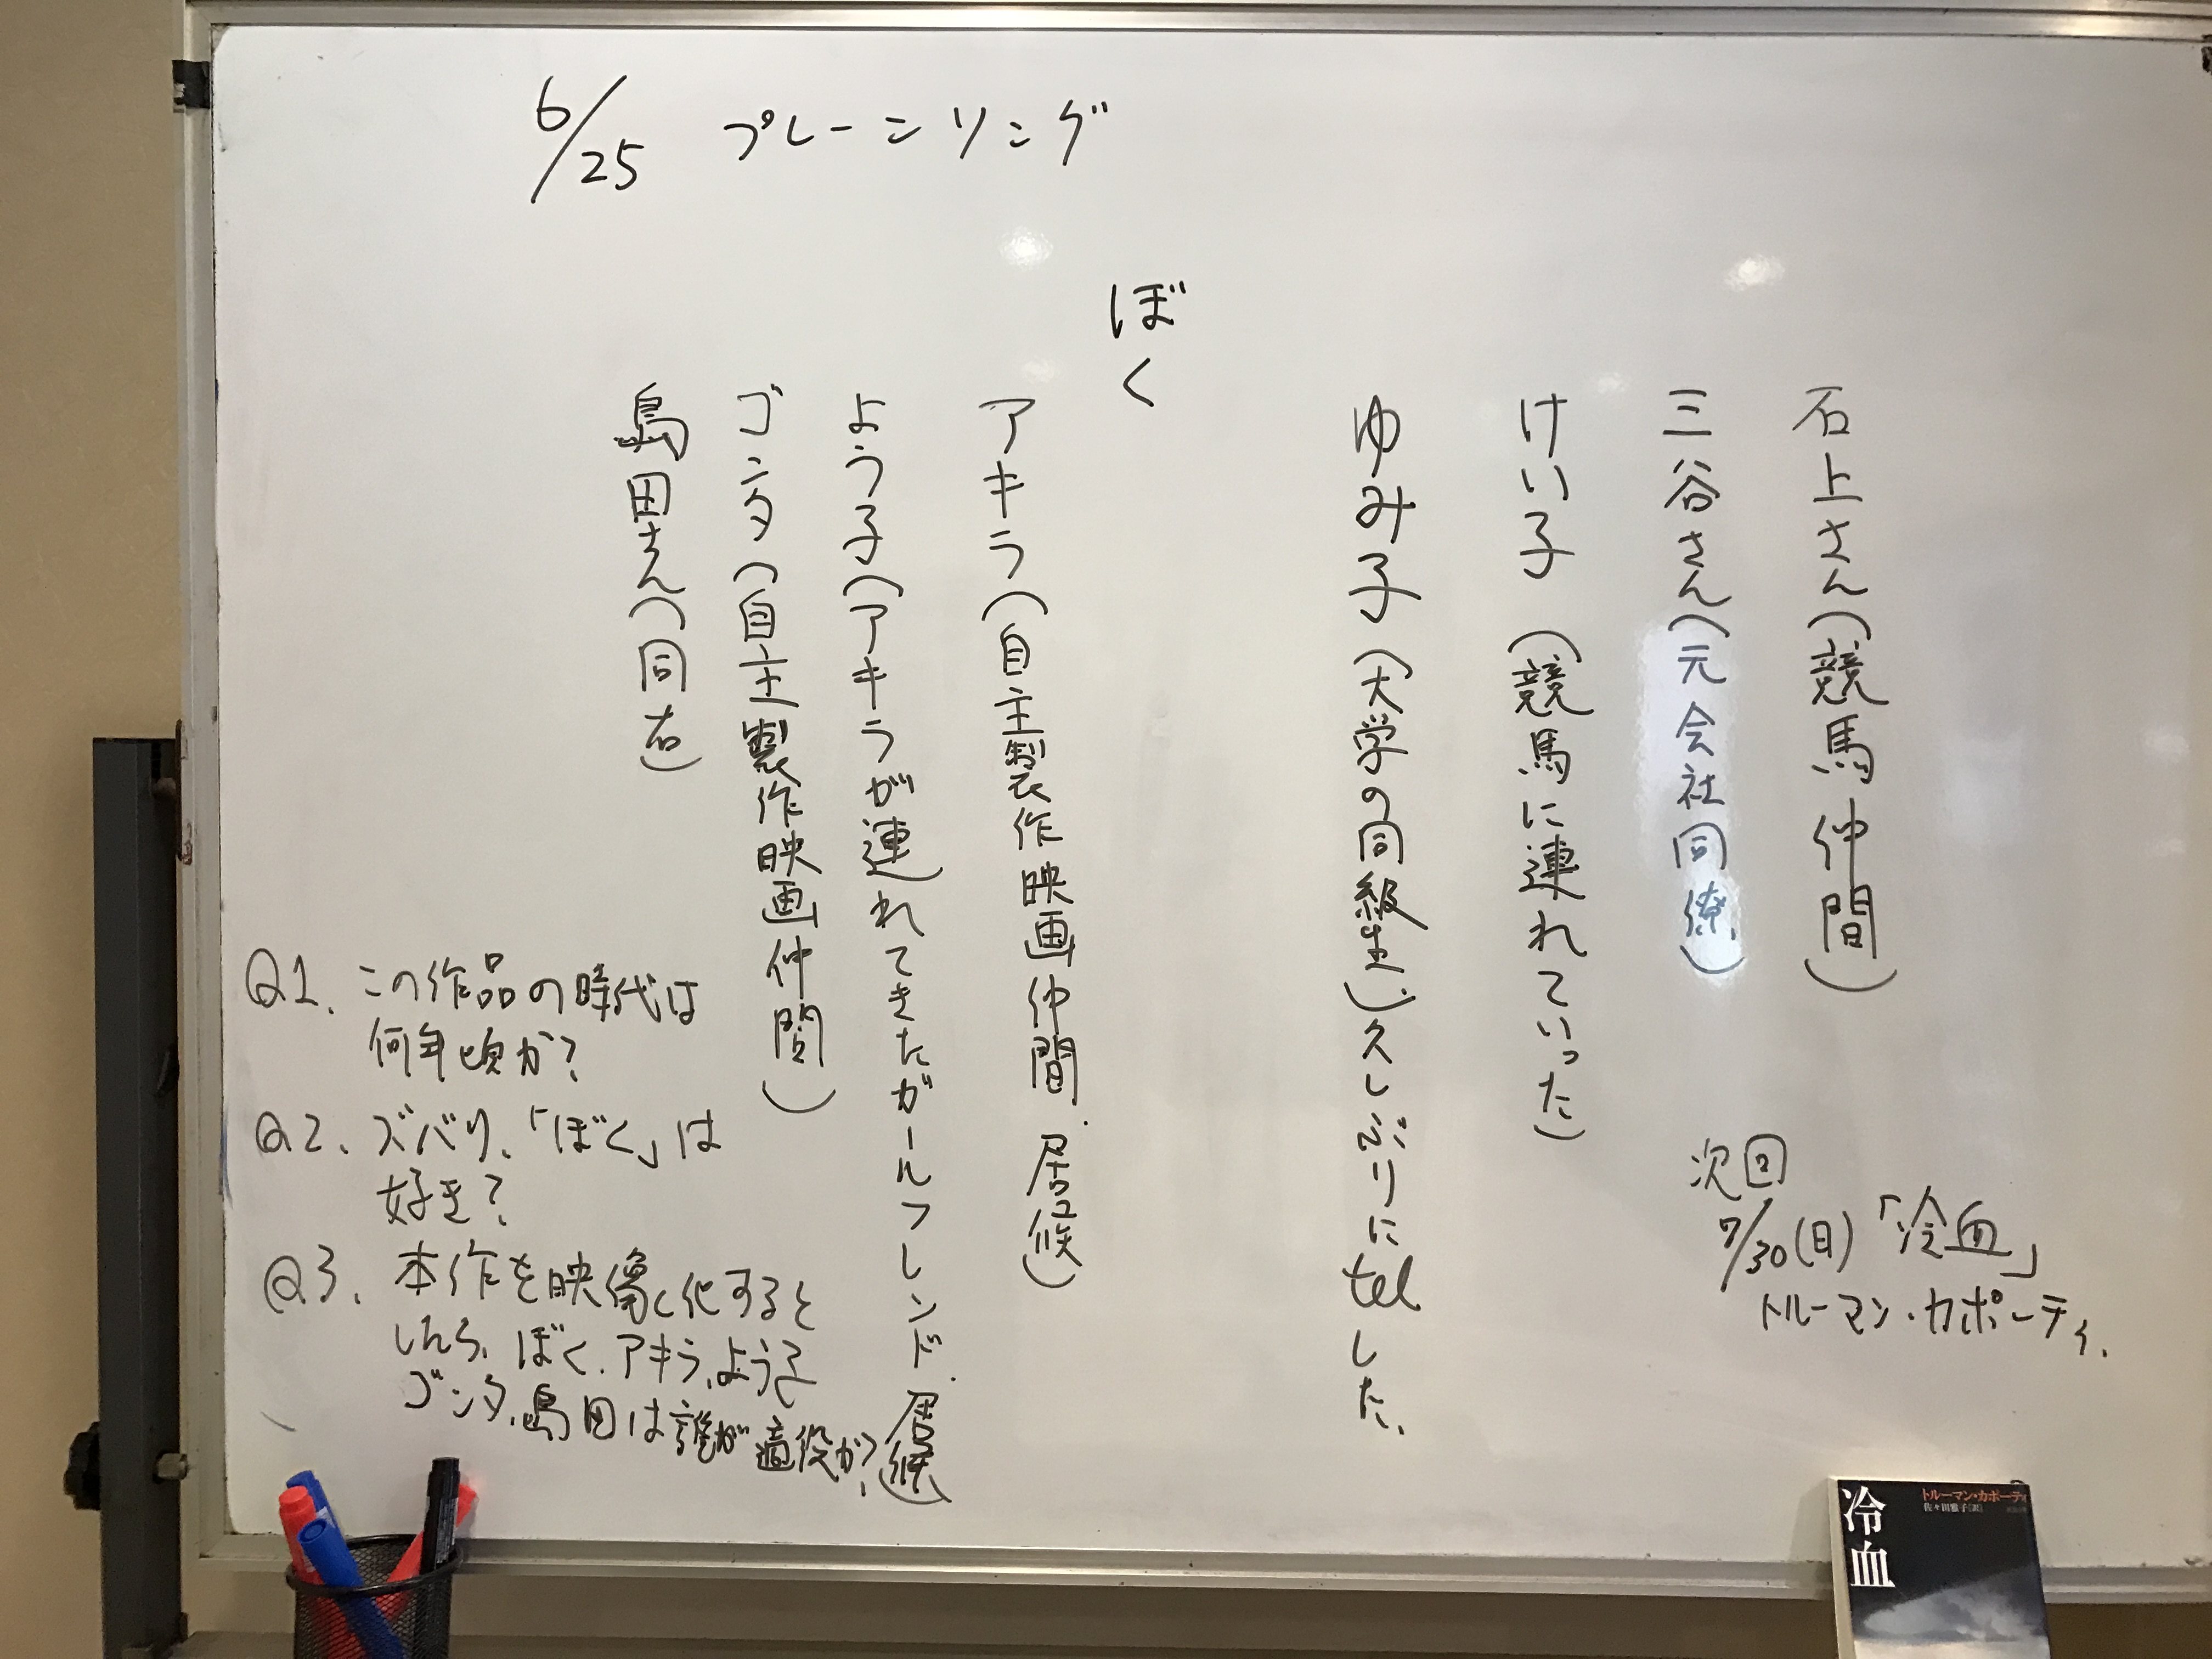 6/25 プレーンソング
石上さん(競馬仲間)
三谷さん(元会社同僚)
けい子(競馬に連れていった)
ゆみ子(大学の同級生)、久しぶりにtelした。
ぼく
アキラ(自主製作映画仲間、居候)
よう子(アキラが連れてきたガールフレンド、居候)
ゴンタ(自主製作映画仲間)
島田さん(同右)
Q1、この作品の時代は
何年頃か?
Q2、ズバリ、「ぼく」は
好き?
Q3、本作を映像化すると
したら、ぼく、アキラ、よう子
ゴンタ、島田は誰が適役か?
次回
7/30(日)「冷血」
トルーマン・カポーティ、
冷血
トルーマン・カポーティ
佐々田雅子[訳]